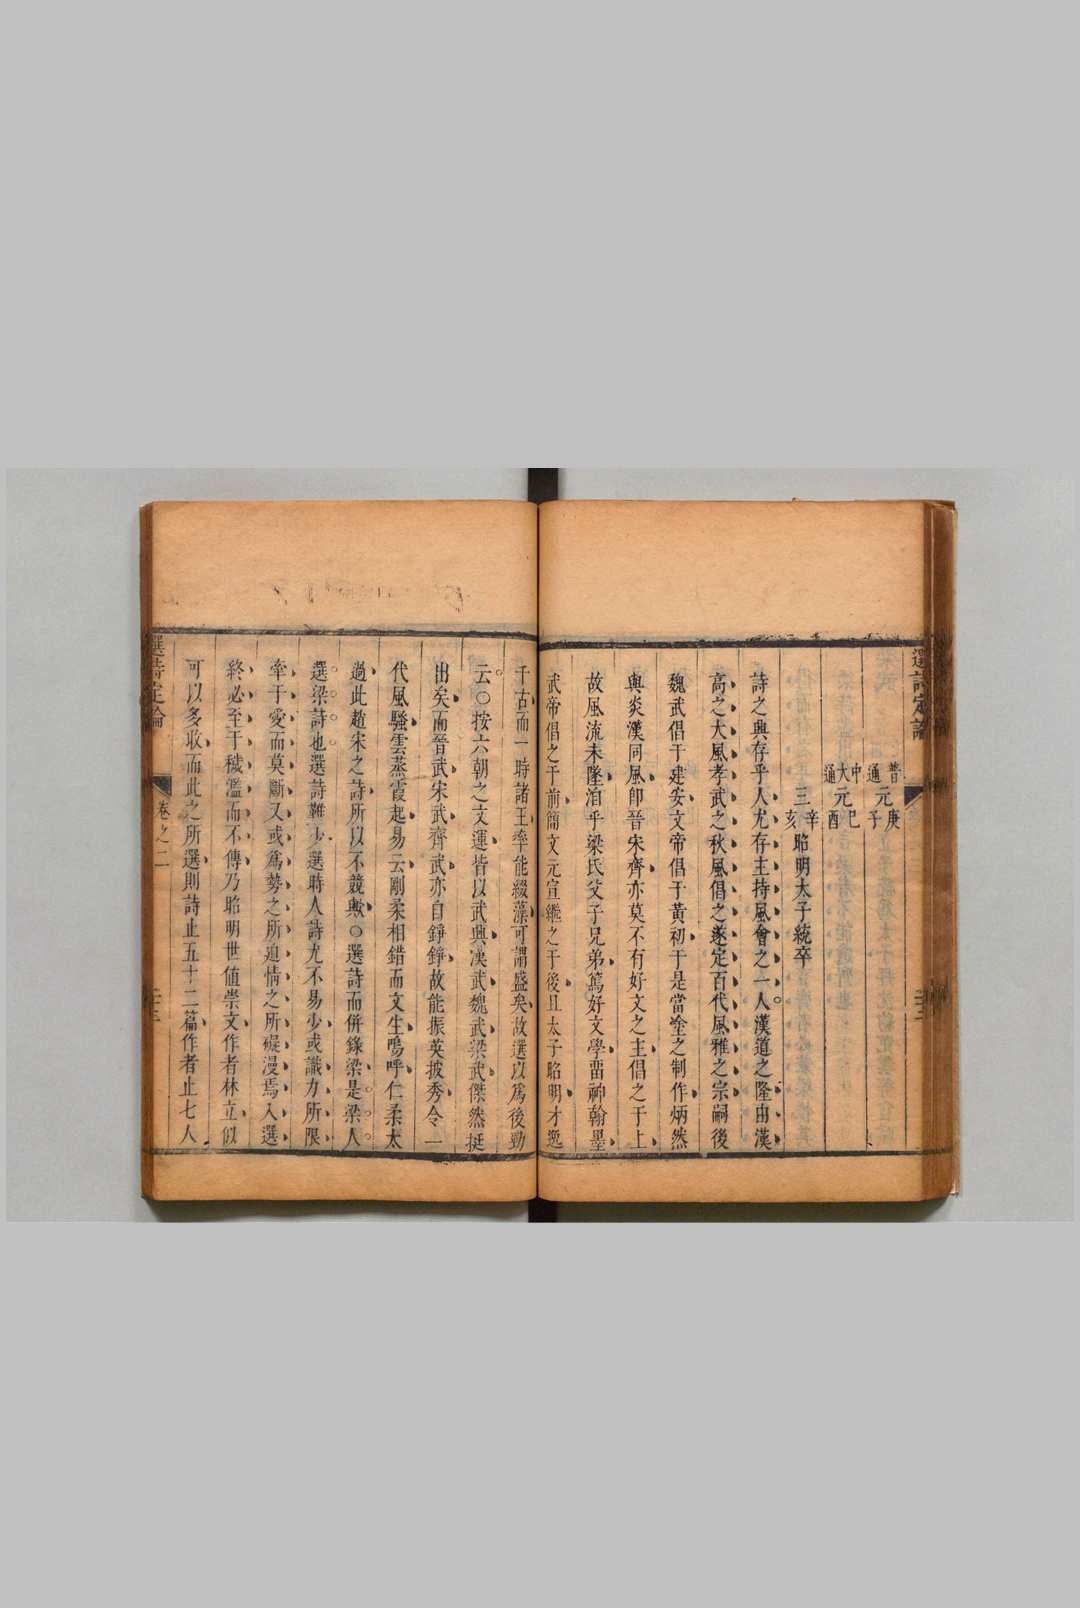 選詩定論
普通元庚子
中大通元己酉
三辛亥昭明太子統卒
詩之興存乎人尤存主持風會之一人漢道之隆由漢
高之大風孝武之秋風倡之遂定百代風雅之宗嗣後
魏武倡于建安文帝倡于黃初于是當塗之制作炳然
與炎漢同風即晉宋齊亦莫不有好文之主倡之于上
故風流未墜洎乎梁氏父子兄弟篤好文學畱神翰墨
武帝倡之于前簡文元宣繼之于後且太子昭明才逸
千古而一時諸王率能綴藻可謂盛矣故選以爲後勁
云○按六朝之文運皆以武興漢武魏武梁武傑然挺
出矣而晉武宋武齊武亦自錚錚故能振英披秀令一
代風騷雲蒸霞起易云剛柔相錯而文生嗚呼仁柔太
過此趙宋之詩所以不競歟○選詩而併錄梁是梁人
選梁詩也選詩難少選時人詩尤不易少或識力所限
牽于愛而莫斷又或爲勢之所迫情之所礙漫焉入選
終必至于穢濫而不傳乃昭明世值崇文作者林立似
可以多收而此之所選則詩止五十二篇作者止七人
選詩定論 卷之二